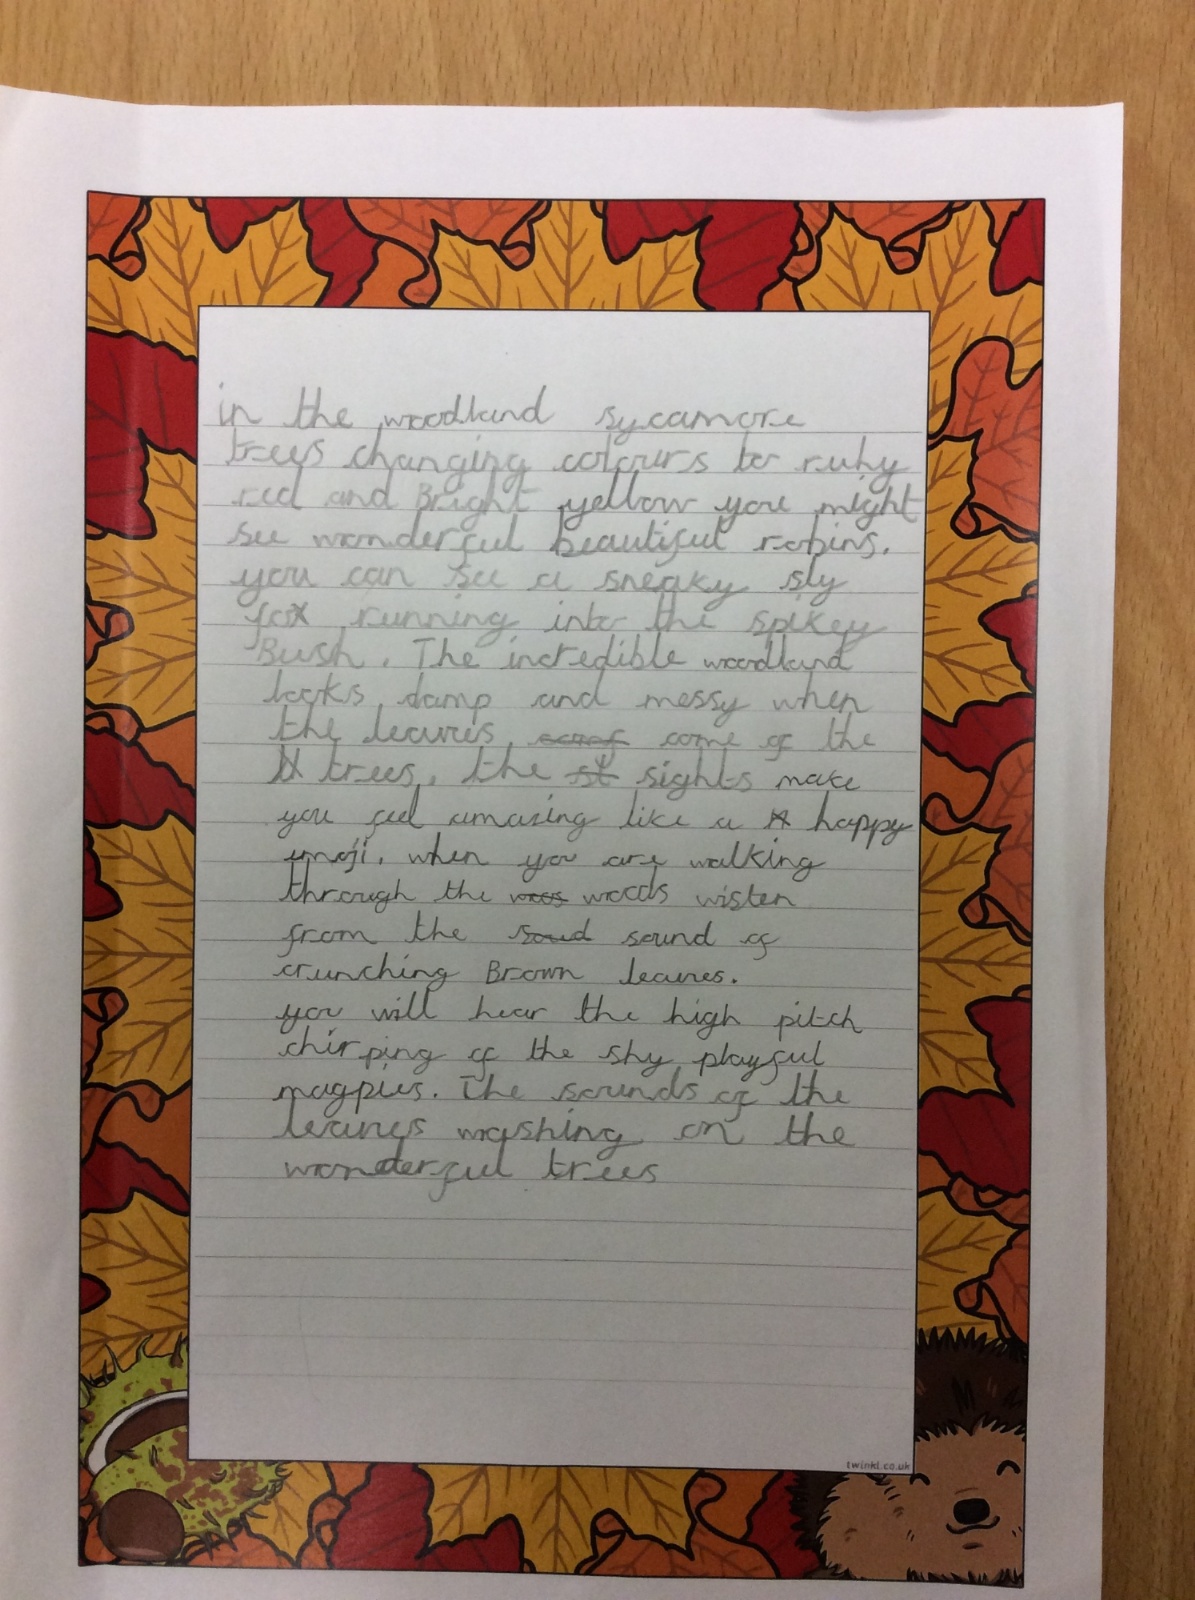 in the woodland sycamore
trees changing colours to ruby
red and Bright yellow you might
see wonderful beautiful robins.
you can see a sneaky sly
fox running into the spikey
Bush. The incredible woodland
looks damp and messy when
the leaves come of the
trees. the sights make
you feel amazing like a happy
emoji. when you are walking
through the woods wisten
from the sound of
crunching Brown leaves.
you will hear the high pitch
chirping of the shy playful
magpies. The sounds of the
leaves washing on the
wonderful trees
twinkl.co.uk